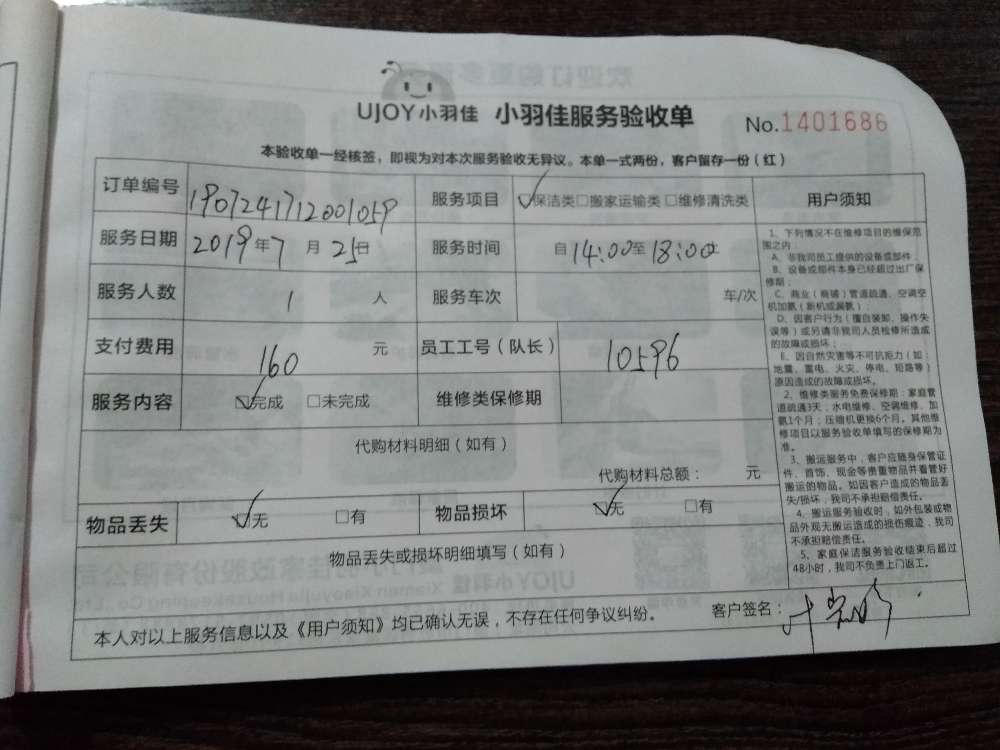 UJOY小羽佳 小羽佳服务验收单 No.1401686
本验收单一经核签，即视为对本次服务验收无异议。本单一式两份，客户留存一份（红）
订单编号 1907241712001059 服务项目 ☑保洁类□搬家运输类□维修清洗类
服务日期 2019年7月25日 服务时间 自14:00至18:00止
服务人数 1 人 服务车次 车/次
支付费用 160 元 员工工号（队长） 10596
服务内容 ☑完成 □未完成 维修类保修期
代购材料明细（如有）
代购材料总额： 元
物品丢失 ☑无 □有 物品损坏 ☑无 □有
物品丢失或损坏明细填写（如有）
本人对以上服务信息以及《用户须知》均已确认无误，不存在任何争议纠纷。 客户签名：
用户须知
1、下列情况不在维修项目的维保范
围之内：
A、非我司员工提供的设备或部件。
B、设备或部件本身已经超过出厂保
修期；
C、商业（商铺）管道疏通、空调空
机加氨（新机或漏氨）；
D、因客户行为（擅自装卸、操作失
误等）或另请非我司人员检修所造成
的故障或损坏；
E、因自然灾害等不可抗拒力（如：
地震、雷电、火灾、停电、短路等）
原因造成的故障或损坏。
2、维修类服务免费保修期：家庭管
道疏通3天；水电维修、空调维修、加
氨1个月；压缩机更换6个月。其他维
修项目以服务验收单填写的保修期为
准。
3、搬运服务中，客户应随身保管证
件、首饰、现金等贵重物品并看管好
搬运的物品。如因客户造成的物品丢
失/损坏，我司不承担赔偿责任。
4、搬运服务验收时，如外包装或物
品外观无搬运造成的损伤痕迹，我司
不承担赔偿责任。
5、家庭保洁服务验收结束后超过
48小时，我司不负责上门返工。